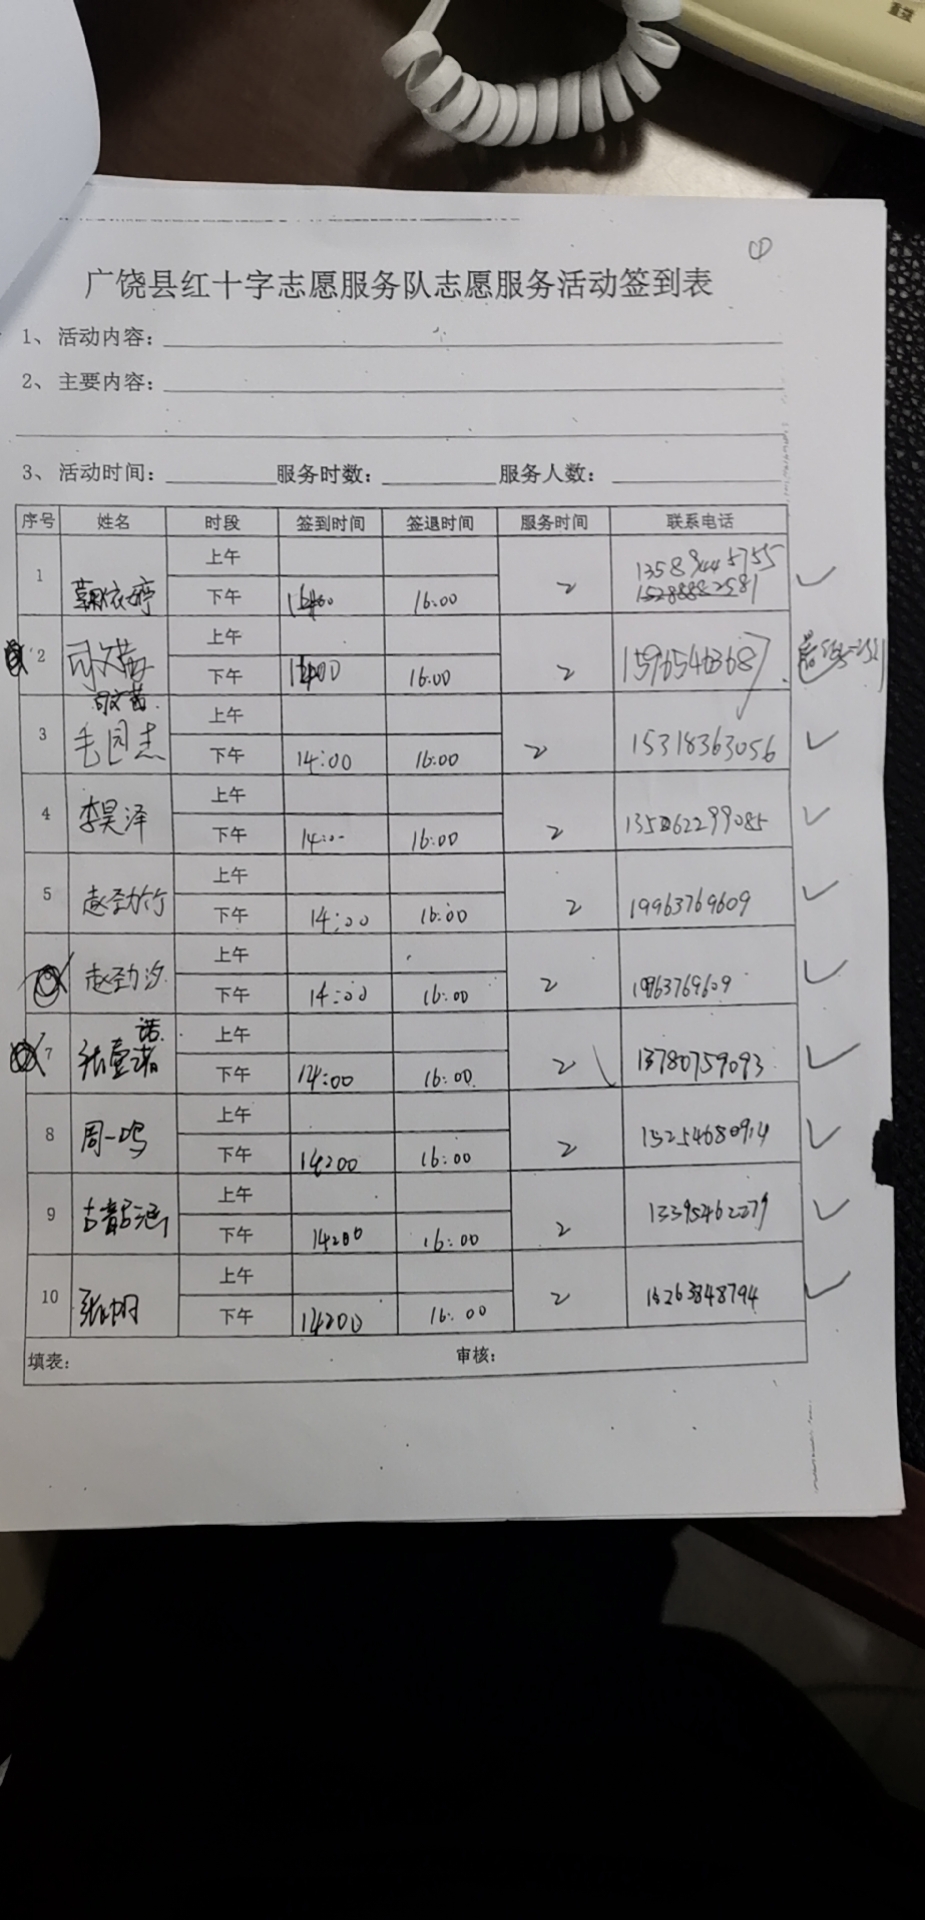 重拨
①
广饶县红十字志愿服务队志愿服务活动签到表
1、活动内容：
2、主要内容：
3、活动时间： 服务时数： 服务人数：
序号 姓名 时段 签到时间 签退时间 服务时间 联系电话
1 上午
下午 16:00 2
2 司文茜 上午
下午 16:00 2 15965463687
司文茜
3 毛园杰 上午
下午 14:00 16:00 2 15318363056
4 李昊泽 上午
下午 16:00 2
5 赵劲竹 上午
下午 14:00 16:00 2 19963769609
赵劲汐 上午
下午 14:00 16:00 2 19963769609
诺
7 张壹诺 上午
下午 14:00 16:00 2 13780759093
8 周一鸣 上午
下午 14:00 16:00 2 15254680914
9 上午
下午 14:00 16:00 2 13395462279
10 上午
下午 14:00 16:00 2 15263848794
填表： 审核：